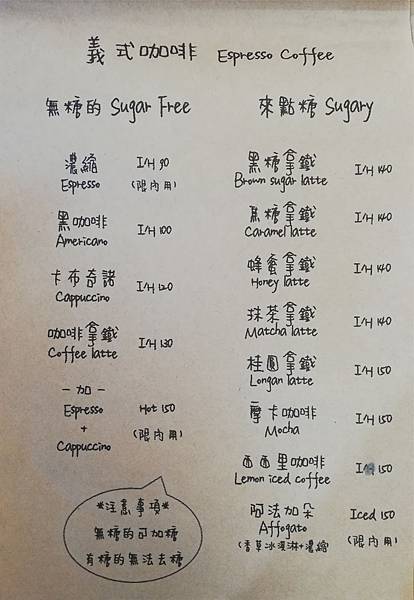 義式咖啡 Espresso Coffee
無糖的 Sugar Free
濃縮 I/H 90
Espresso (限內用)
黑咖啡 I/H 100
Americano
卡布奇諾 I/H 120
Cappuccino
咖啡拿鐵 I/H 130
Coffee latte
－加－
Espresso Hot 150
+ (限內用)
Cappuccino
*注意事項*
無糖的可加糖
有糖的無法去糖
來點糖 Sugary
黑糖拿鐵 I/H 140
Brown sugar latte
焦糖拿鐵 I/H 140
Caramel latte
蜂蜜拿鐵 I/H 140
Honey latte
抹茶拿鐵 I/H 140
Matcha latte
桂圓拿鐵 I/H 150
Longan latte
摩卡咖啡 I/H 150
Mocha
西西里咖啡 I 150
Lemon iced coffee
阿法加朵 Iced 150
Affogato (限內用)
(香草冰淇淋+濃縮)